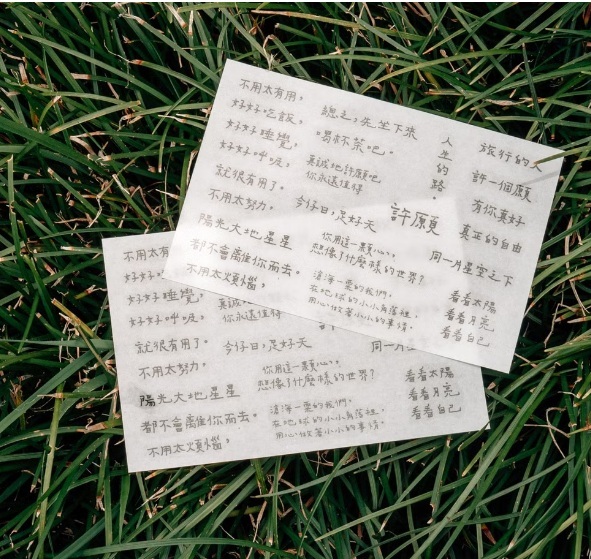 不用太有用，
好好吃飯，
好好睡覺，
好好呼吸，
就很有用了。
不用太努力。
陽光大地星星
都不會離你而去。
不用太煩惱，
總之，先坐下來
喝杯茶吧。
真誠地許願吧
你永遠值得
今仔日，足好天
你用這一顆心，
想像了什麼樣的世界？
滄海一粟的我們，
在地球的小小角落裡，
用心做著小小的事情。
人生的路，
許願
旅行的人
許一個願
有你真好
真正的自由
同一片星空之下
看看太陽
看看月亮
看看自己
不用太有
好好
好好睡覺，
好好呼吸，
就很有用了。
不用太努力。
陽光大地星星
都不會離你而去。
不用太煩惱，
真誠
你永遠值得
今仔日，足好天
你用這一顆心，
想像了什麼樣的世界？
滄海一粟的我們，
在地球的小小角落裡，
用心做著小小的事情。
同一片星
看看太陽
看看月亮
看看自己